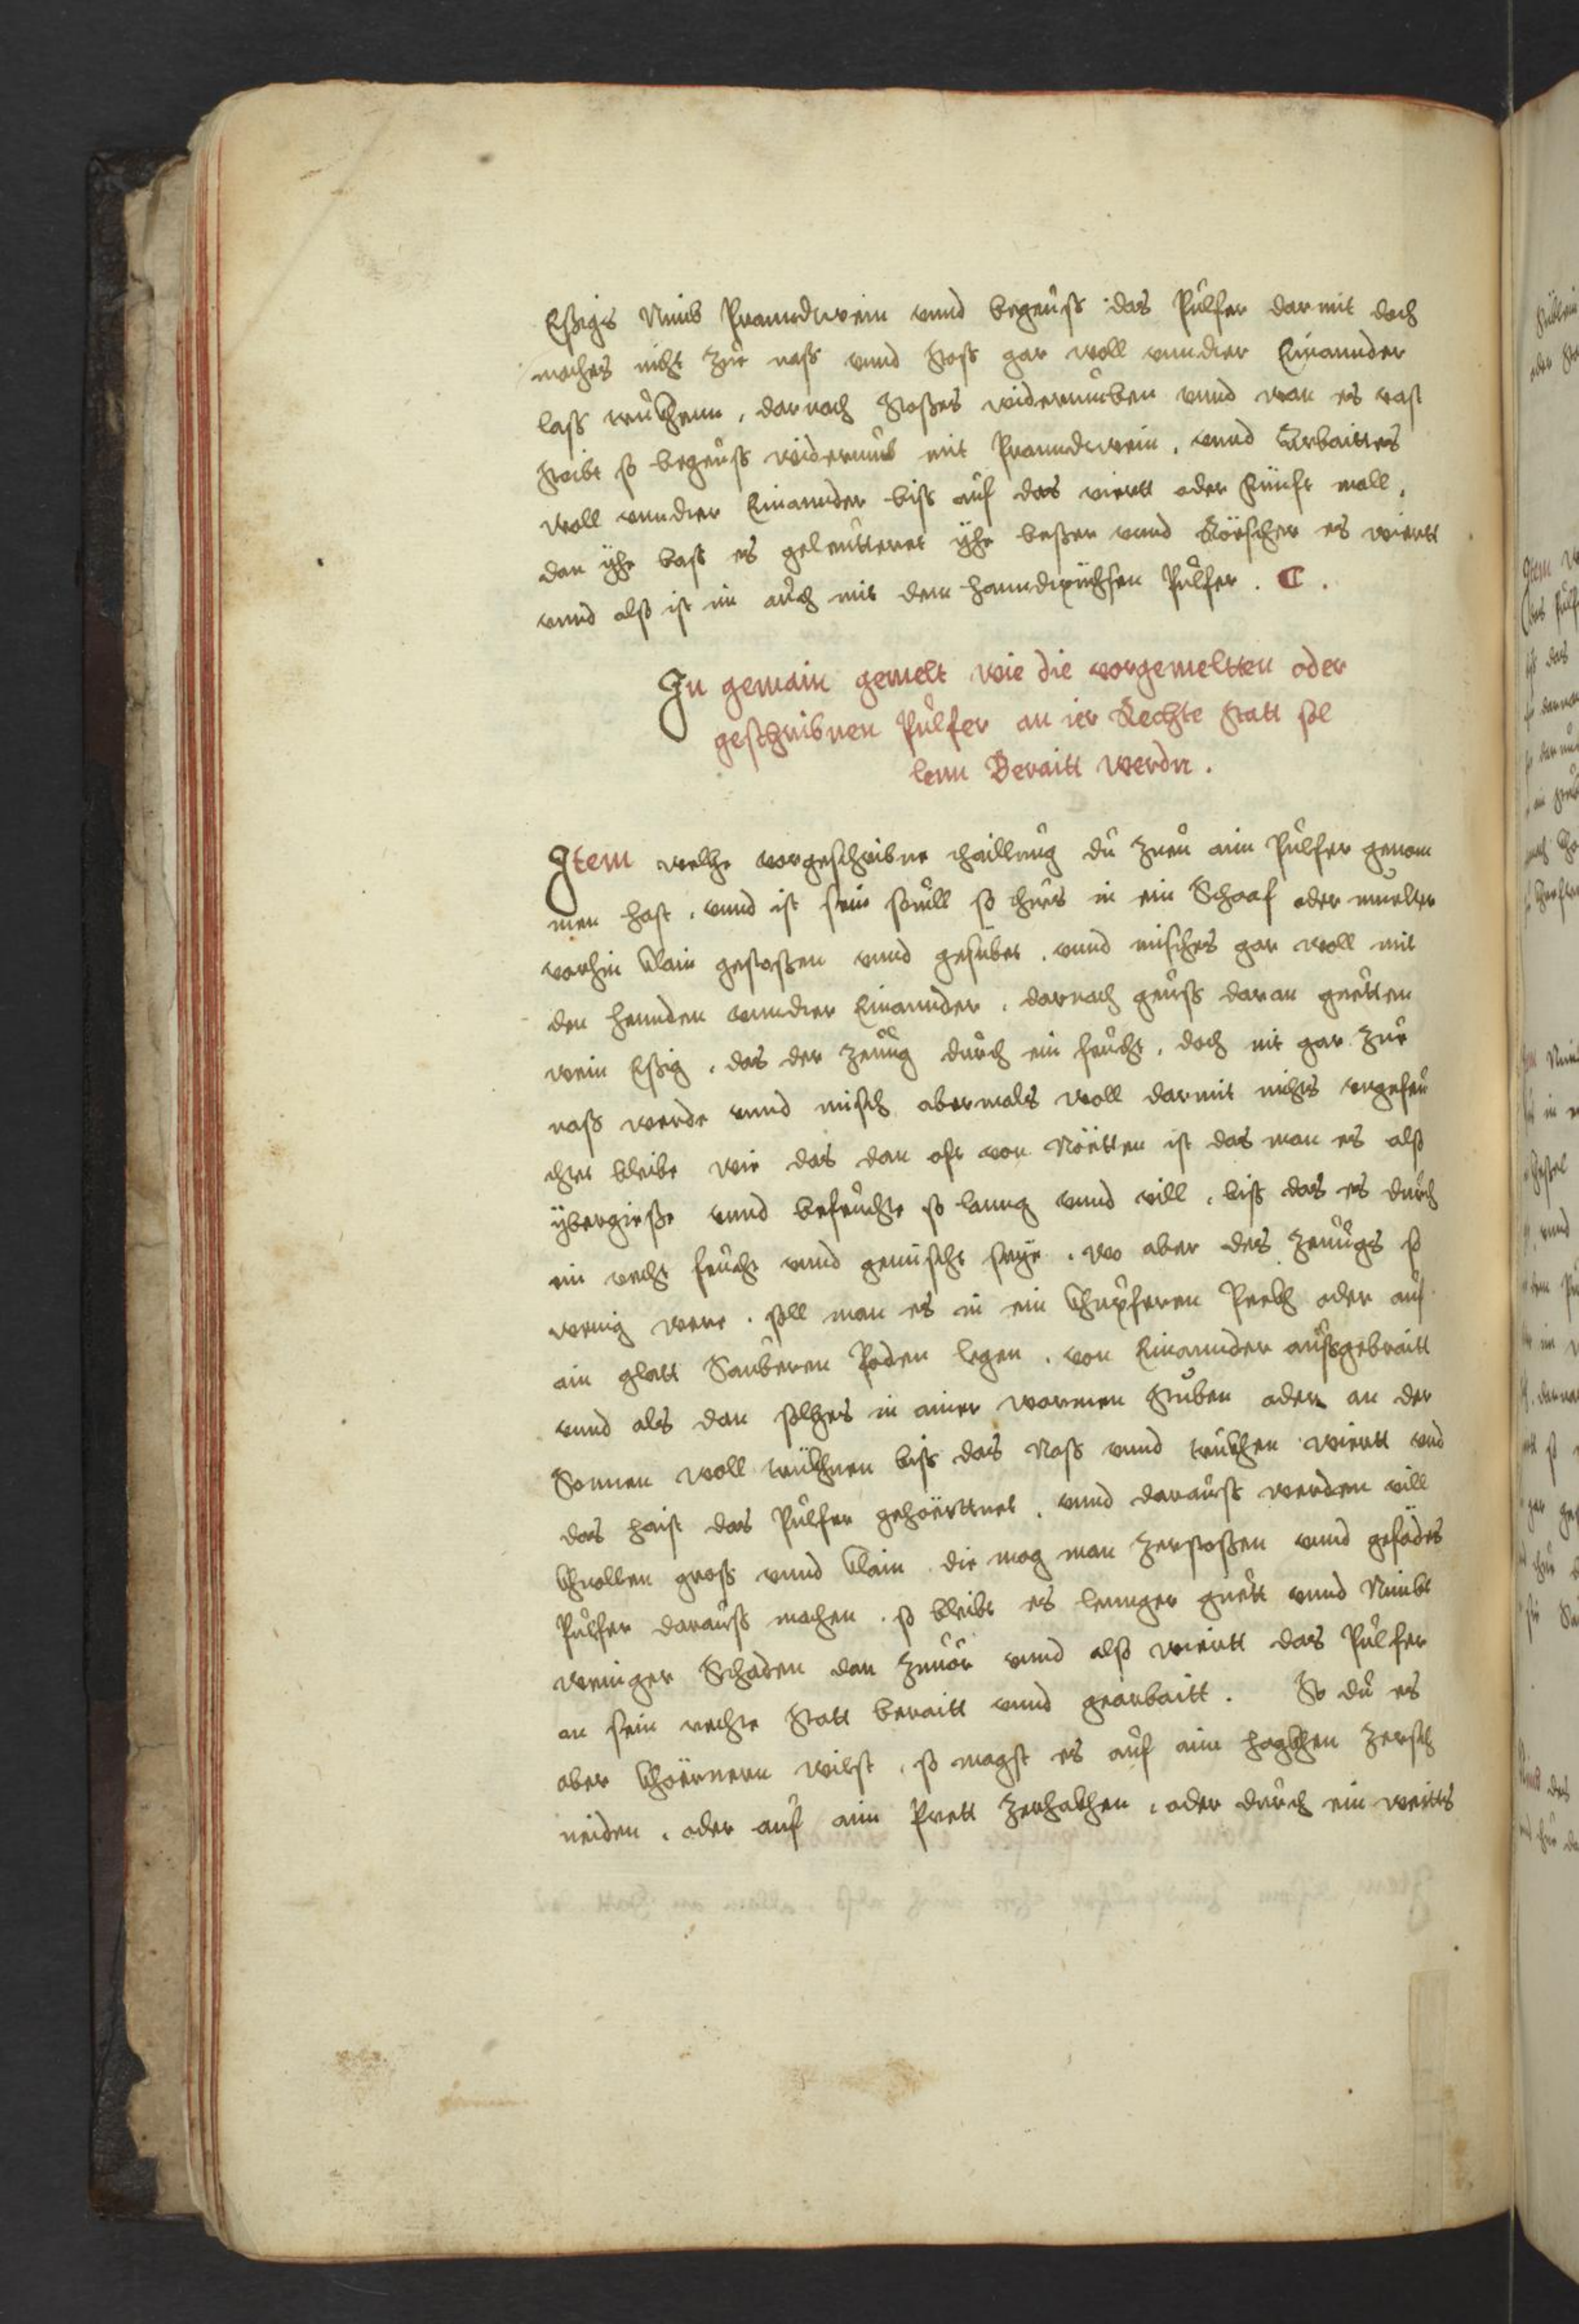 Eßigs Nimb Pranndwein vnnd begeuß das Pulfer darmit doch
maches nicht zue naß vnnd stoß gar woll vnnder Einannder
laß truckhenn, darnach stoßes widerumben vnnd wan es vast
staibt so begeuß widerumb mit Pranndwein, vnnd Arbaittes
woll vnnder Einannder biß auf das viertt oder Finnft mall,
dan yhe baß es geleuttertet yhe beßer vnnd Röscher es wiertt
vnnd alß ist im auch mit dem hanndpüchsen Pulfer. C.
In gemain gemelt wie die vorgemeltten oder
geschribnen Pulfer an ier Rechte statt sol
lenn Beraitt werdn.
Item welhe vorgeschribne thaillung du zueu aim Pulfer genom
men hast, vnnd ist sein souill so thues in ein Schaaf oder muelter
vorhin klain gestoßen vnnd gesübet, vnnd misches gar woll mit
den hennden vnnder Einannder, darnach geuß daran guetten
wein Eßig, das der zeuug durch ein feucht, doch nit gar zue
naß werde vnnd misch abermals woll darmit nichts vngefeu
chtet bleibe wie das dan oft von Nötten ist das man es alß
ybergieße vnnd befeuchte so lanng vnnd vill, biß das es durch
ein recht feucht vnnd gemischt seye, wo aber des zeuugs so
wenig were, soll man es in ein khupferen Peckh oder auf
ain glatt Sauberen Poden legen, von Einannder außgebraitt
vnnd als dan solhes in ainer warmen stuben oder an der
Sonnen woll truckhnen biß das Naß vnnd truckhen wiertt vnd
das haist das Pulfer gehörttnet, vnnd darauß werden vill
khnollen groß vnnd klain die mag man zerstoßen vnnd gesädes
Pulfer darauß machen, so bleibt es lennger guett vnnd Nimbt
weniger Schaden dan zuuor vnnd alß wiertt das Pulfer
an sein rechte statt beraitt vnnd gearbaitt. So du es
aber khörnern wilst, so magst es auf aim hackhen zersch
neiden, oder auf aim Prett zerhackhen, oder durch ein weitts